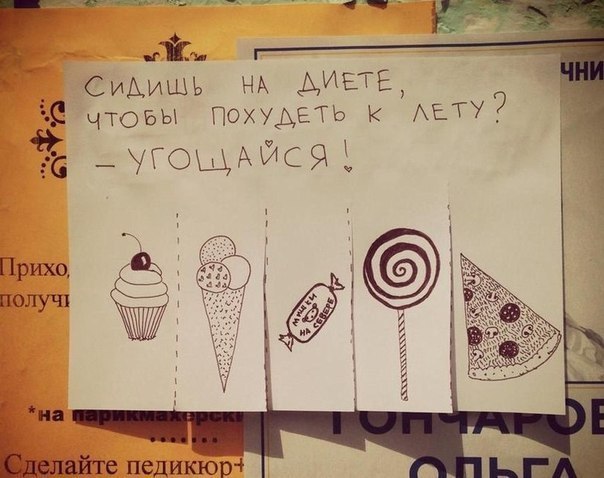 СИДИШЬ НА ДИЕТЕ,
ЧТОБЫ ПОХУДЕТЬ К ЛЕТУ?
– УГОЩАЙСЯ!
МИШКИ
НА СЕВЕРЕ
*на парикмахерски
Сделайте педикюр+
ОЛЬГА